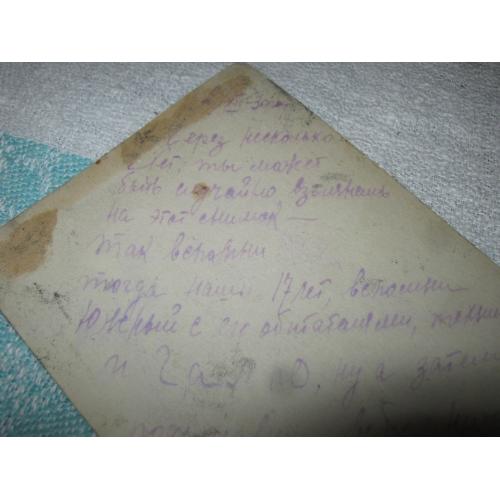 Через несколько
лет, ты может
быть случайно взглянешь
на этот снимок —
так вспомни
тогда наши 17 лет, вспомни
Южный с его обитателями,
и Галю, ну а затем